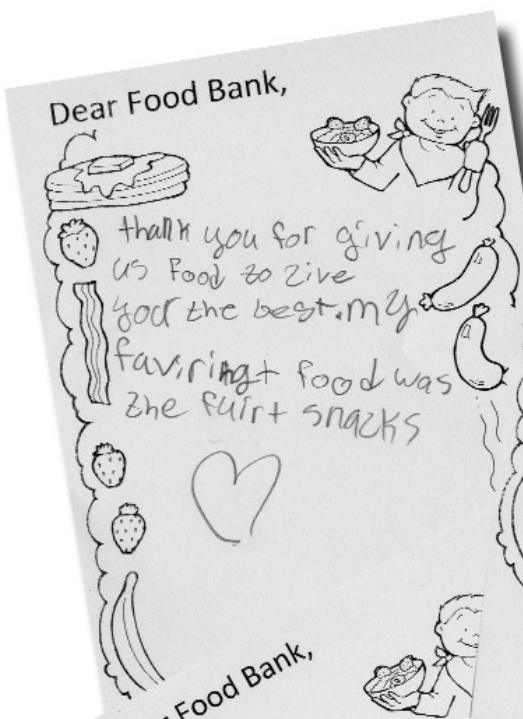 Dear Food Bank,
thank you for giving
us Food to zive
your the best. my
faviringt food was
the fuirt snacks
Food Bank,